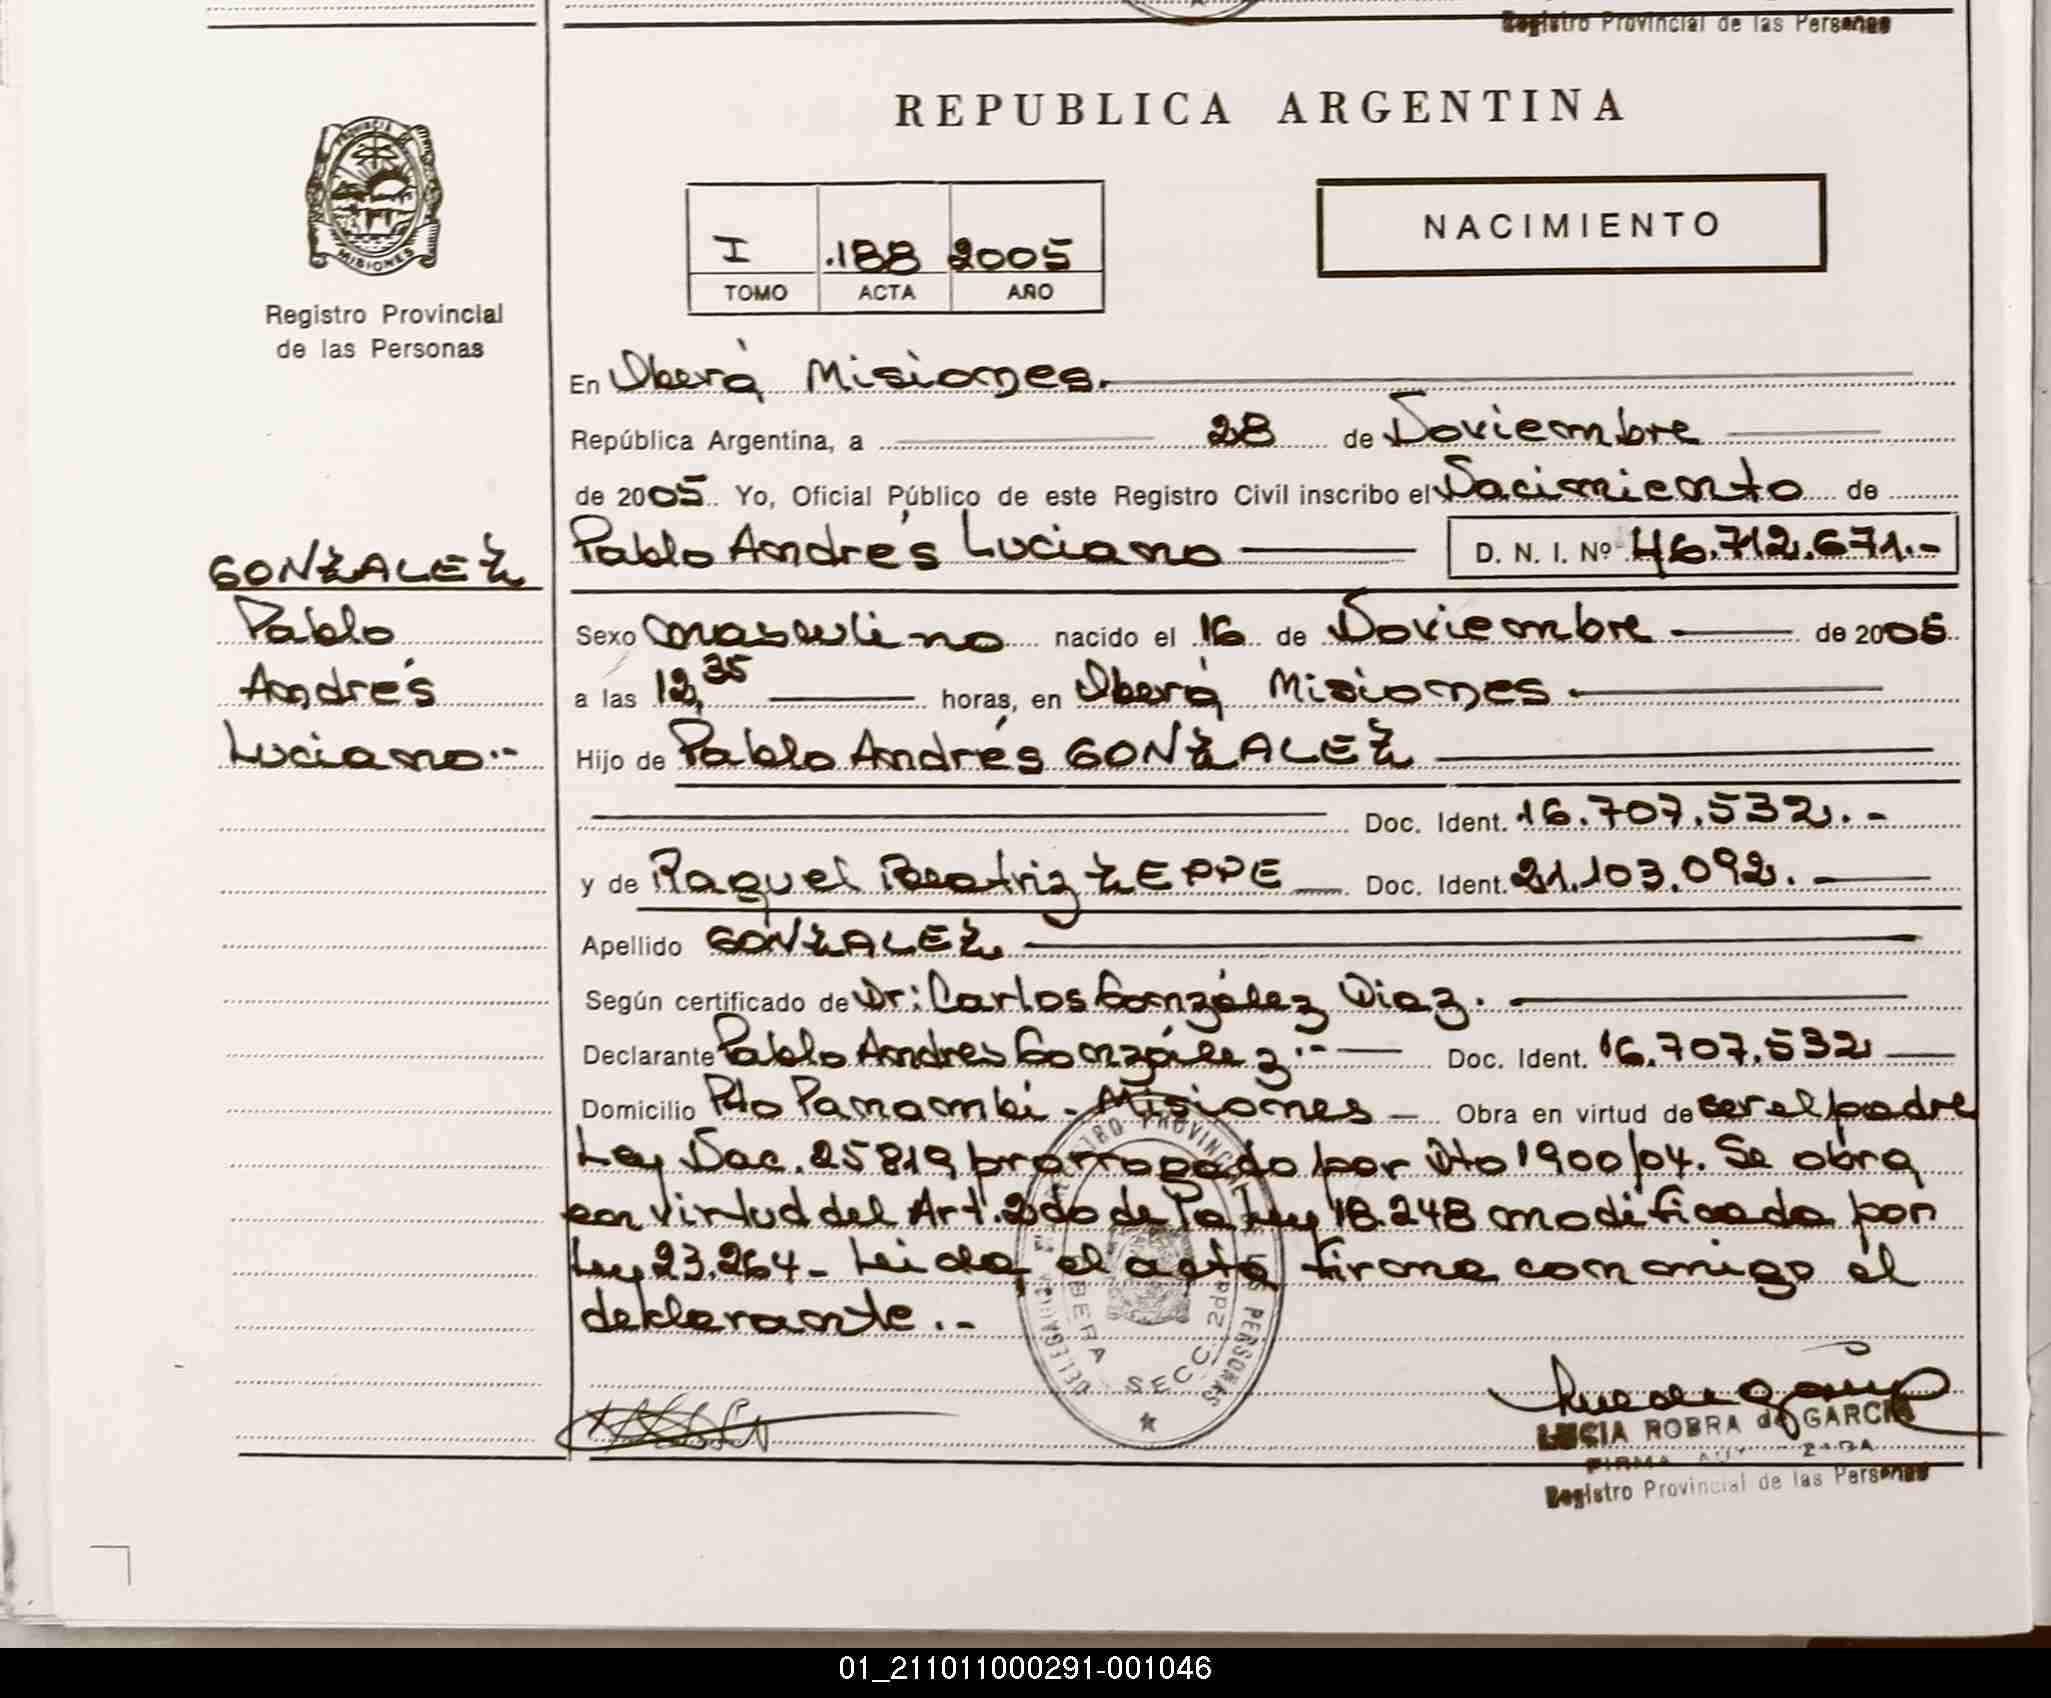 Registro Provincial de las Personas
REPUBLICA ARGENTINA
PROVINCIA DE
MISIONES
Registro Provincial
de las Personas
I .188 2005
TOMO ACTA AÑO
NACIMIENTO
En Oberá Misiones.
República Argentina, a 28 de Noviembre
de 2005 Yo, Oficial Público de este Registro Civil inscribo el Nacimiento de
Pablo Andrés Luciano D. N. I. Nº 46.712.671.-
GONZALEZ
Pablo
Andrés
Luciano.-
Sexo masculino nacido el 16 de Noviembre de 2005
a las 12,35 horas, en Oberá Misiones
Hijo de Pablo Andrés GONZALEZ
Doc. Ident. 16.707.532.-
y de Raquel Beatriz ZEPPE Doc. Ident. 21.103.092.
Apellido GONZALEZ
Según certificado de Dr: Carlos González Diaz.
Declarante Pablo Andres González.- Doc. Ident. 16.707.532
Domicilio Pto Panambí - Misiones Obra en virtud de ser el padre
Ley Nac. 25819 prorrogado por Dto 1900/04. Se obra
en virtud del Art. 2do de la Ley 18.248 modificada por
Ley 23.264- Leida el acta firma conmigo el
deklarante.-
REGISTRO PROVINCIAL DE LAS PERSONAS
DELEGACION
OBERA SECC. 2da
LUCIA ROBRA de GARCIA
FIRMA
Registro Provincial de las Personas
01_211011000291-001046